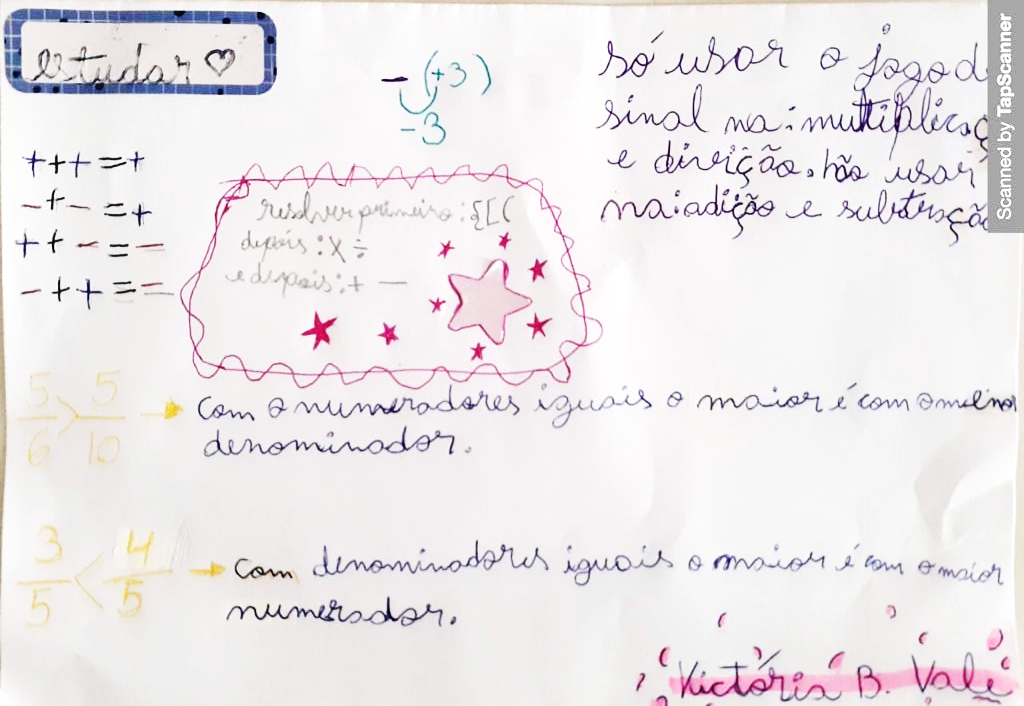 estudar ♡
-(+3)
-3
só usar o jogo d
sinal na: multiplicaç
e divição. não usar
na: adição e subtraçã
+ + + = +
- + - = +
+ + - = -
- + + = -
resolver primeiro: {[(
depois: X ÷
e depois: + -
5/6 > 5/10 → com o numeradores iguais o maior é com o menor
denominador.
3/5 < 4/5 → com denominadores iguais o maior é com o maior
numerador.
Victória B. Vale
Scanned by TapScanner